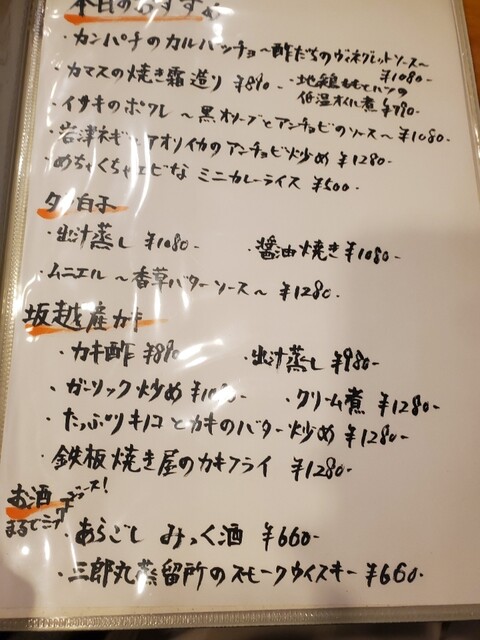 本日のおすすめ
・カンパチのカルパッチョ〜酢だちのヴィネグレットソース〜 ¥1080-
・カマスの焼き霜造り ¥890- ・地鶏ももとハツの低温オイル煮 ¥790-
・イサキのポワレ 〜黒オリーブとアンチョビのソース〜 ¥1080-
・岩津ネギとアオリイカのアンチョビ炒め ¥1280-
・めちゃくちゃエビな ミニカレーライス ¥500-
白子
・出汁蒸し ¥1080- ・醤油焼き ¥1080-
・ムニエル 〜香草バターソース〜 ¥1280-
坂越産カキ
・カキ酢 ¥890- ・出汁蒸し ¥980-
・ガーリック炒め ・クリーム煮 ¥1280-
・たっぷりキノコとカキのバター炒め ¥1280-
・鉄板焼き屋のカキフライ ¥1280-
お酒
まるで
・あらごし みっく酒 ¥660-
・三郎丸蒸留所のスモークウイスキー ¥660-